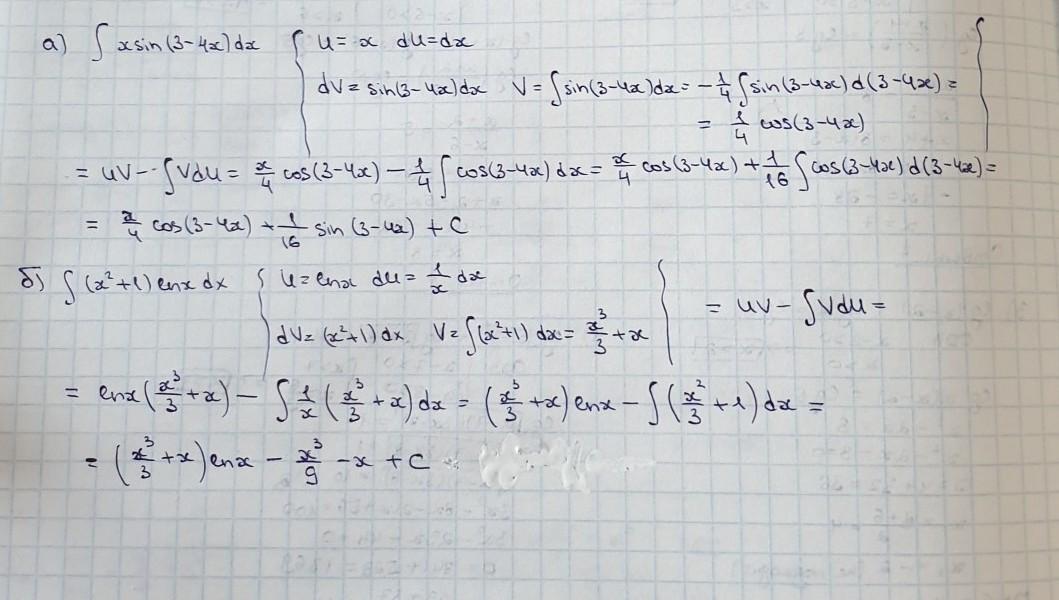 а) ∫ x sin(3-4x)dx { u = x du = dx
dV = sin(3-4x)dx V = ∫sin(3-4x)dx = -1/4 ∫sin(3-4x)d(3-4x) =
= 1/4 cos(3-4x) }
= uV - ∫Vdu = x/4 cos(3-4x) - 1/4 ∫cos(3-4x)dx = x/4 cos(3-4x) + 1/16 ∫cos(3-4x)d(3-4x) =
= x/4 cos(3-4x) + 1/16 sin(3-4x) + C
б) ∫(x²+1)lnx dx { u = lnx du = 1/x dx
dV = (x²+1)dx V = ∫(x²+1)dx = x³/3 + x } = uV - ∫Vdu =
= lnx(x³/3 + x) - ∫ 1/x (x³/3 + x)dx = (x³/3 + x)lnx - ∫(x²/3 + 1)dx =
= (x³/3 + x)lnx - x³/9 - x + C